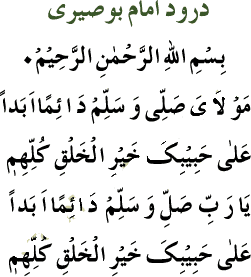 درود امام بوصیری
بِسْمِ اللهِ الرَّحْمٰنِ الرَّحِيْمِ۰
مَوْلَایَ صَلِّی وَ سَلِّمْ دَائِمًا اَبَداً
عَلیٰ حَبِیْبِکَ خَیْرِ الْخَلْقِ کُلِّهِمِ
یَا رَبِّ صَلِّ وَ سَلِّمْ دَائِمًا اَبَداً
عَلیٰ حَبِیْبِکَ خَیْرِ الْخَلْقِ کُلِّهِمِ